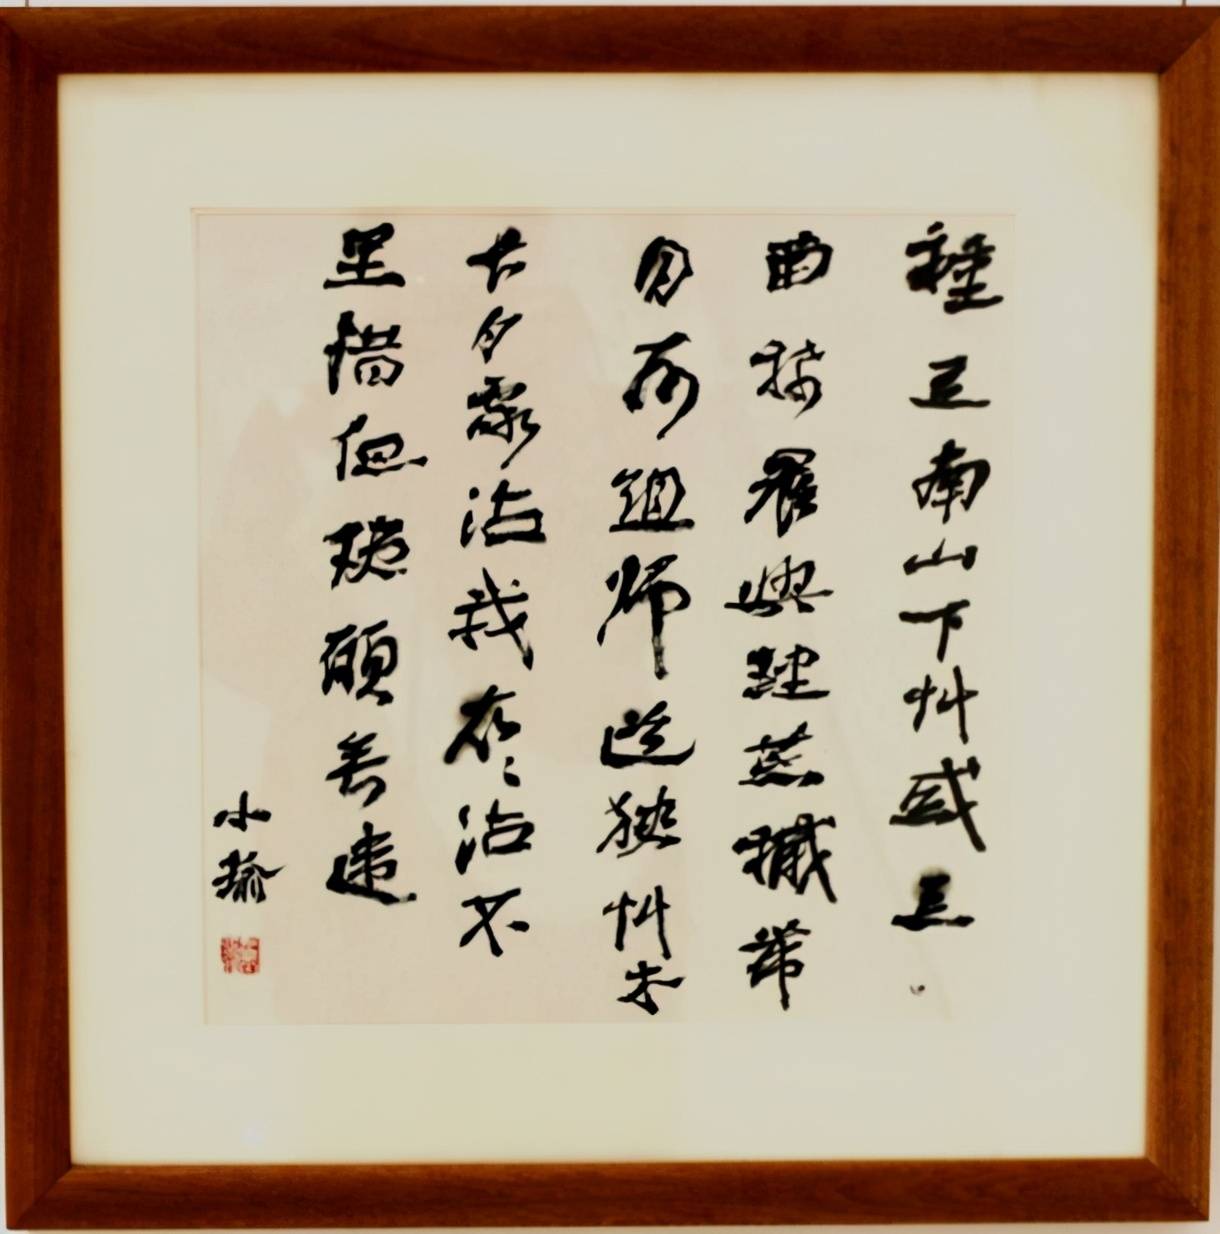 種豆南山下艸盛豆
苗稀晨興理蕪穢帶
月荷鉏歸道狹艸木
長夕露沾我衣〻沾不
足惜但使願無違
小瑜